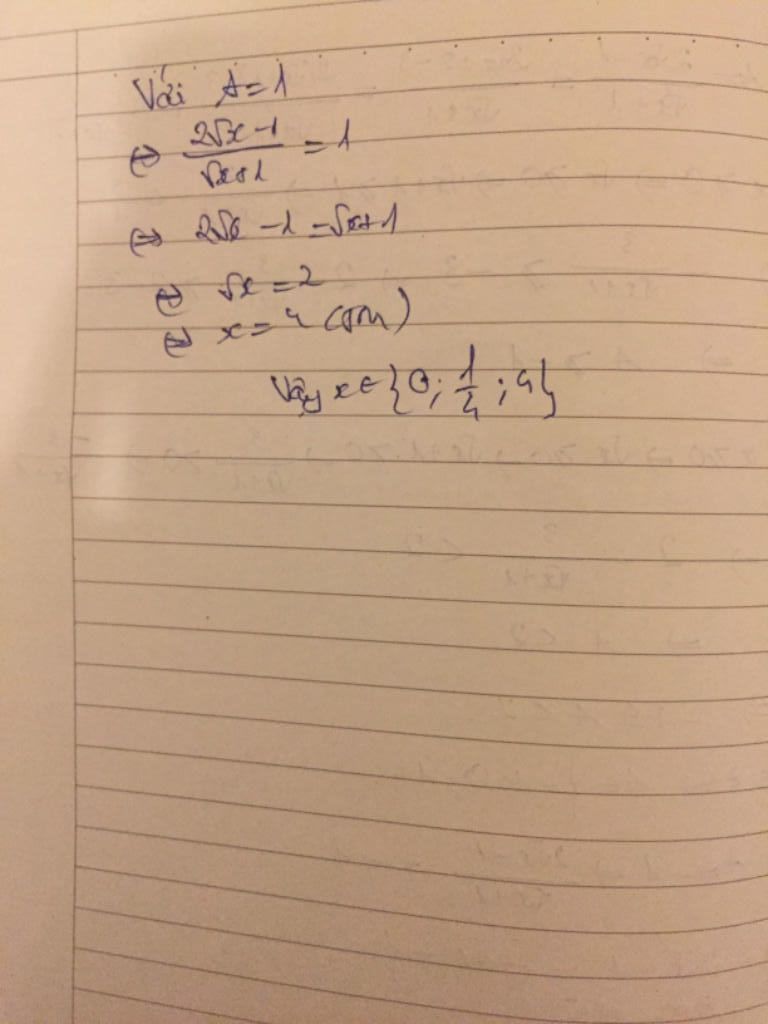 Với A = 1
⇔ (2√x - 1)/(√x+1) = 1
⇔ 2√x - 1 = √x + 1
⇔ √x = 2
⇔ x = 4 (TM)
Vậy x ∈ {0; 1/4; 4}